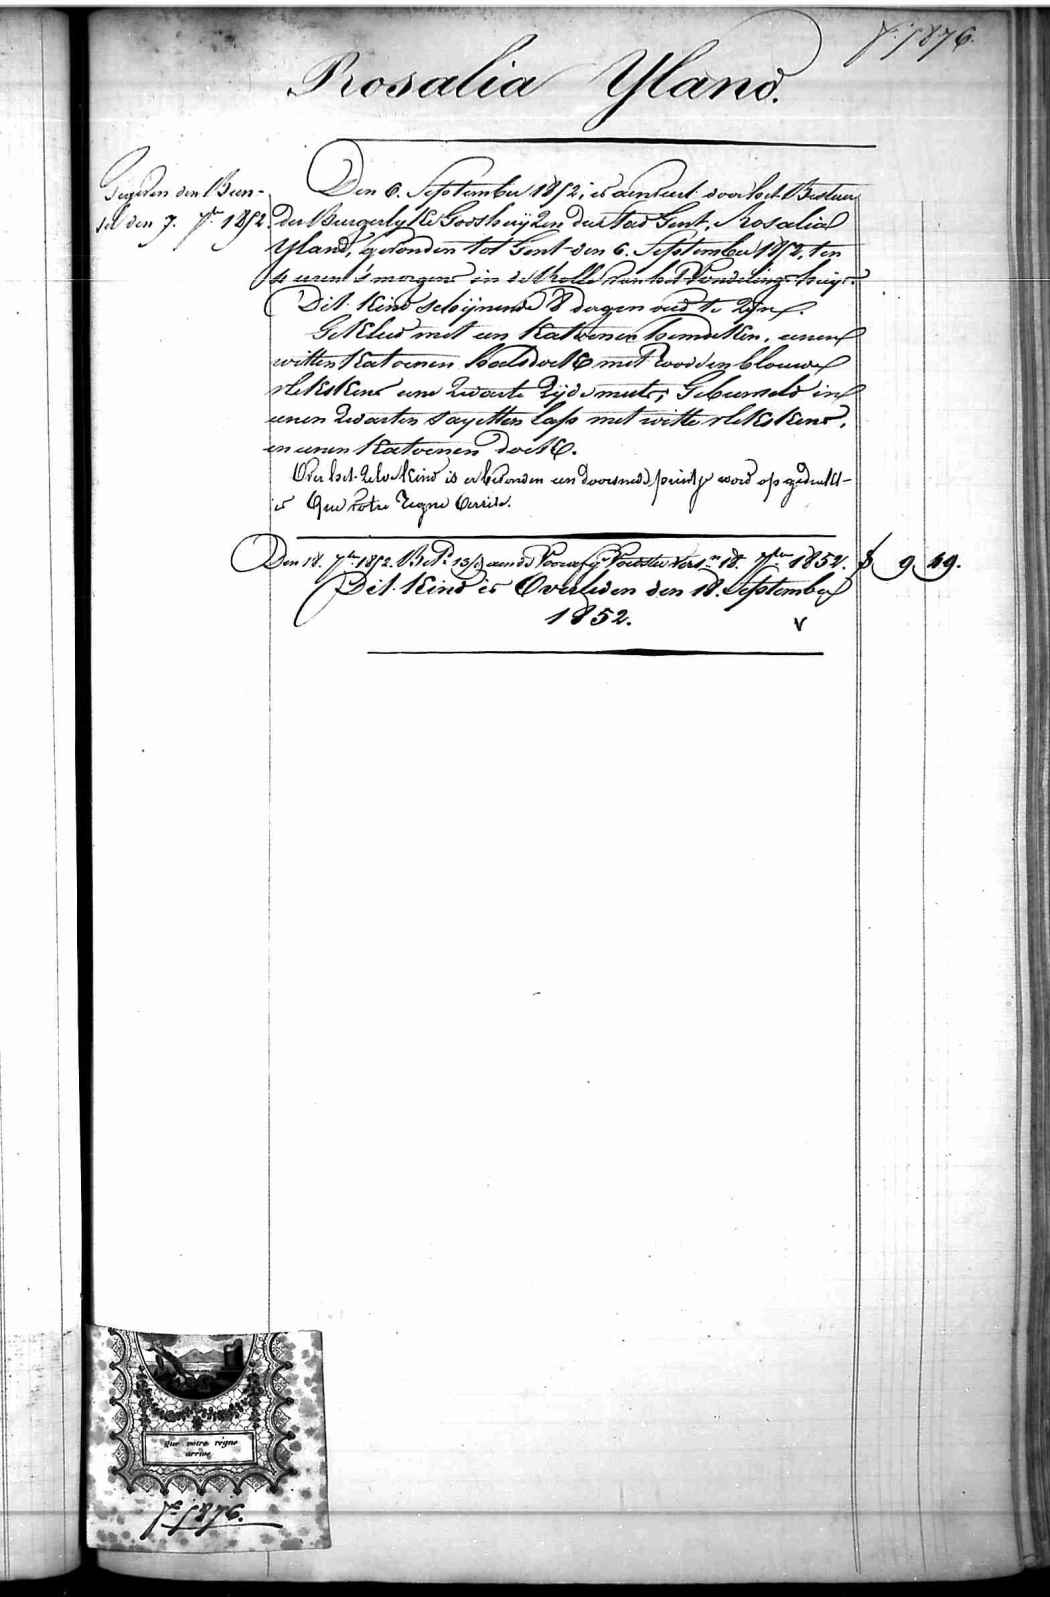 N.º 1876.
Rosalia Yland.
Gegeven den Buen-
sel den 7. 7.br 1852.
Den 6. September 1852, is aenveert door het Bestuer
der Burgerlyke Godshuijzen der stad Gent, Rosalia
Yland, gevonden tot Gent den 6. September 1852, ten
4 uren 's morgens in de Rolle van het Vondelings huijs.
Dit kind schijnende 8 dagen oud te Zijn.
Gekleed met een katoenen hemdeken, eenen
witten katoenen halsdoek met rood en blouwe
vlekskens eene Zwarte Zijde muts, Gebunseld in
eenen Zwarten sayetten laps met witte vlekskens,
en eenen katoenen doek.
Over het Zelve kind is er bevonden een doorsneden printje waer op gedrukt
is Que votre regne arrive.
Den 18. 7.br 1852. Bet.d 13/ aen de Voedster vers.n 18. 7.br 1852. f 9 49.
Dit kind is Overleden den 18. September
1852. v
Que votre règne
arrive
N.º 1876.